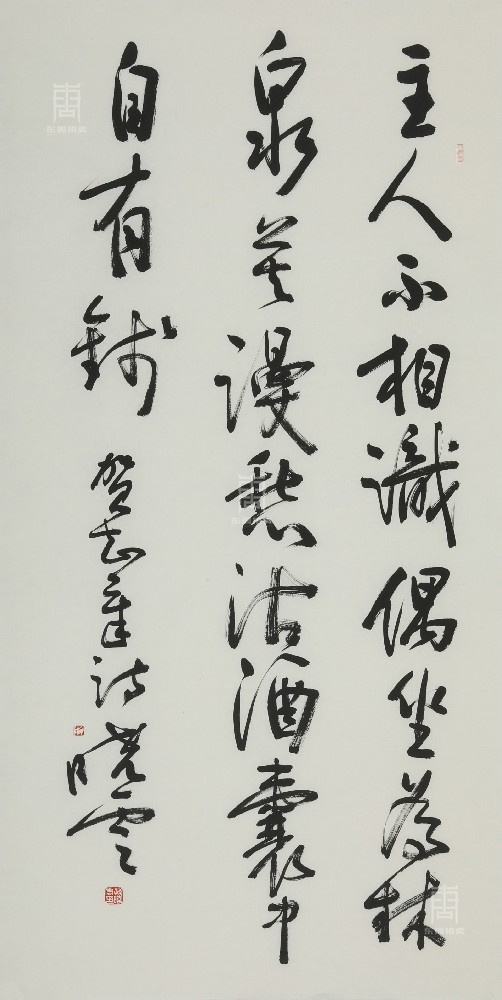 主人不相識偶坐為林
泉莫謾愁沽酒囊中
自有錢
賀知章詩曉雲